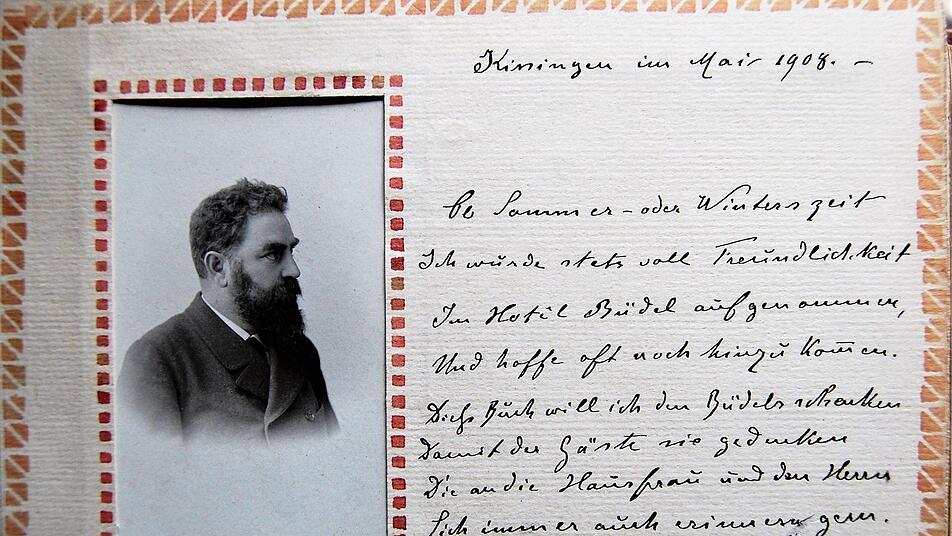 Kissingen im Mai 1908. –
Ob Sommer- oder Winterszeit
Ich wurde stets voll Freundlichkeit
Im Hotel Büdel aufgenommen,
Und hoffe oft noch hinzukom̅en.
Dies Buch will ich den Büdels schenken
Damit der Gäste sie gedenken
Die an die Hausfrau und den Herrn
Sich immer auch erinnern gern.